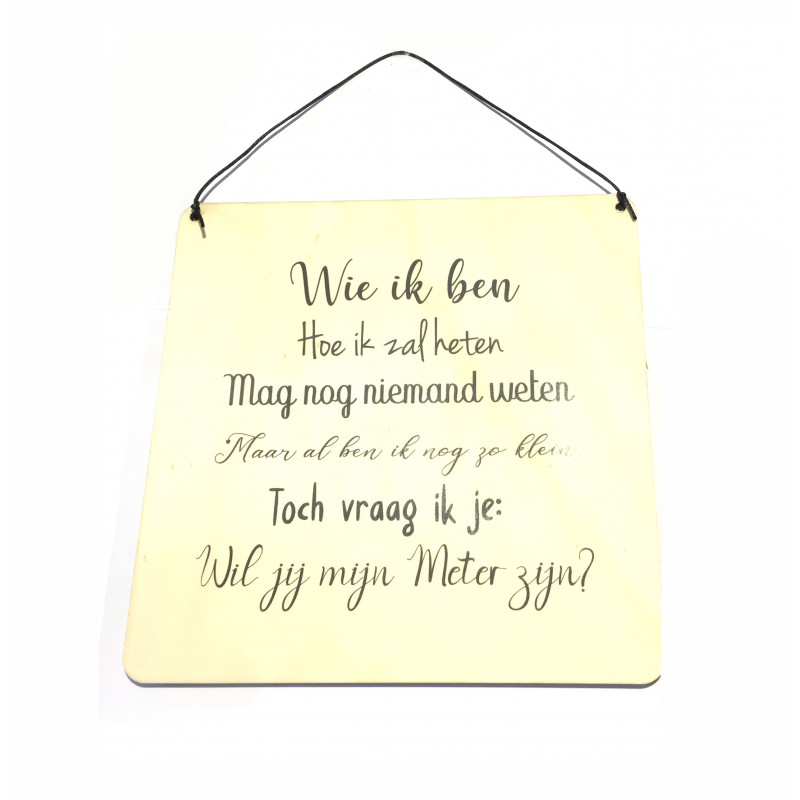 Wie ik ben
Hoe ik zal heten
Mag nog niemand weten
Maar al ben ik nog zo klein
Toch vraag ik je:
Wil jij mijn Meter zijn?